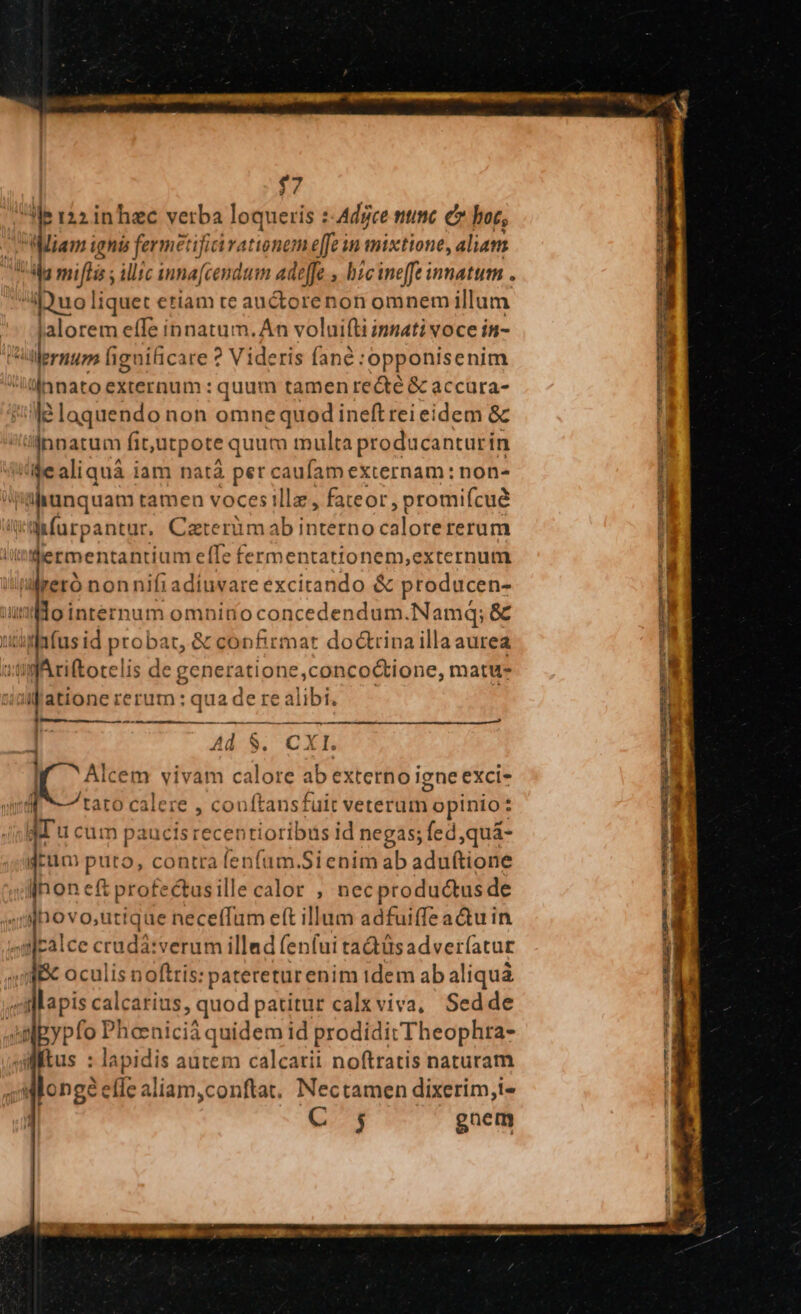 57
122 in hæc verba loqueris : Adijce nunc & hoc,
aliam ignis fermẽtifici rationem eſſe in mixtione, aliam
miſtis ; illic innaſcendum adeſſe , hîc ineſſe innatum .
Quo liquet etiam te auctore non omnem illum
calorem eſſe innatum. An voluiſti innati voce in-
ternum ſignificare ? Videris ſanè : opponis enim
innato externum : quum tamen rectè & accura-
tè loquendo non omne quod ineſt rei eidem &
innatum ſit, utpote quum multa producantur in
re aliquâ iam natâ per cauſam externam : non-
nunquam tamen voces illæ, fateor, promiſcuè
uſurpantur. Cæterùm ab interno calore rerum
fermentantium eſſe fermentationem, externum
verò non niſi adiuvare excitando & producen-
do internum omnino concedendum. Namq; &
uſus id probat, & confirmat doctrina illa aurea
Ariſtotelis de generatione, concoctione, matu-
ratione rerum : qua de re alibi.
Ad §. CXI.
Alcem vivam calore ab externo igne exci-
tato calere , conſtans fuit veterum opinio :
Tu cum paucis recentioribus id negas; ſed, quã-
tum puto, contra ſenſum. Si enim ab aduſtione
non eſt profectus ille calor , nec productus de
novo, utique neceſſum eſt illum adfuiſſe actu in
calce crudâ: verum illud ſenſui tactûs adverſatur
& oculis noſtris: pateretur enim idem ab aliquâ
lapis calcarius, quod patitur calx viva, Sed de
gypſo Phœniciâ quidem id prodidit Theophra-
ſtus : lapidis autem calcarii noſtratis naturam
longè eſſe aliam, conſtat. Nec tamen dixerim, i-
C 5 gnem